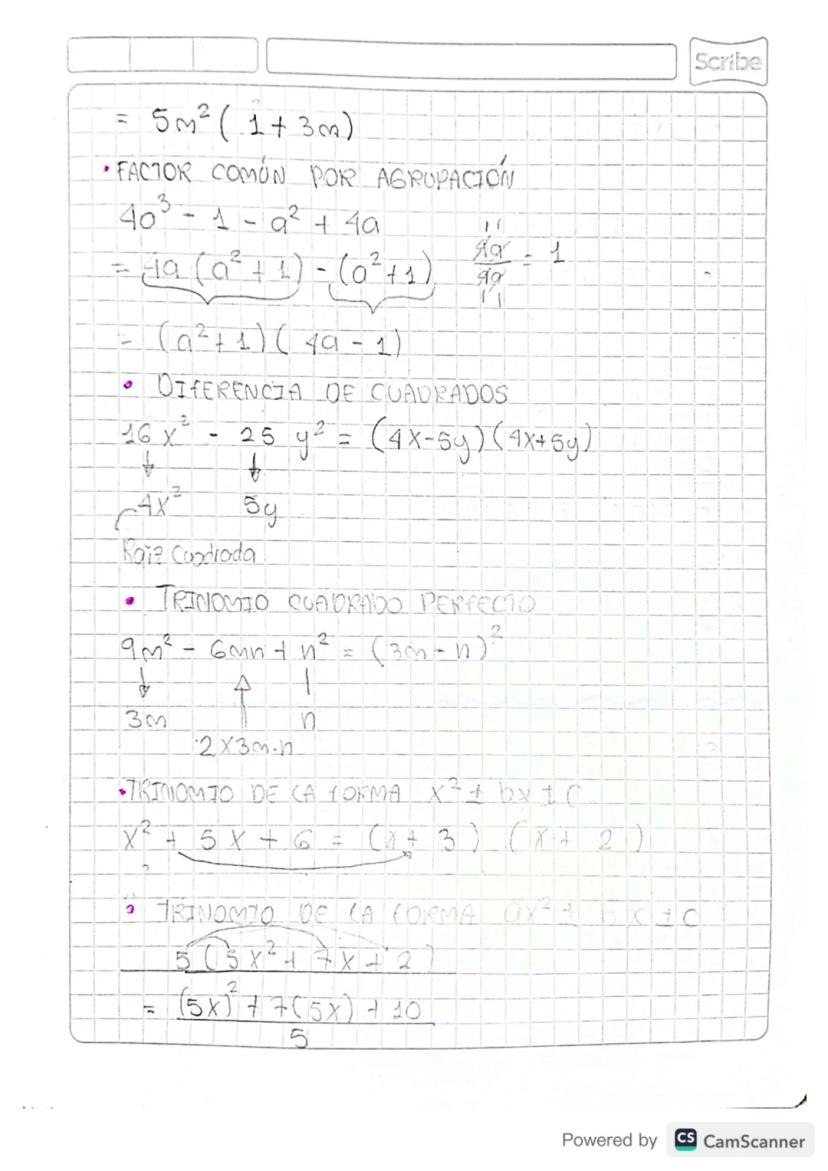 Scribe
= 5m² ( 1 + 3m)
• FACTOR COMÚN POR AGRUPACIÓN
4a³ - 1 - a² + 4a
= 4a (a² + 1) - (a² + 1)   4a/4a = 1
= (a² + 1) ( 4a - 1)
• DIFERENCIA DE CUADRADOS
16 x² - 25 y² = (4x-5y) (4x+5y)
4x² 5y
Raiz Cuadrada
• TRINOMIO CUADRADO PERFECTO
9m² - 6mn + n² = (3m - n)²
3m n
2x3m.n
• TRINOMIO DE LA FORMA x² ± bx ± C
x² + 5x + 6 = (x + 3) (x + 2)
• TRINOMIO DE LA FORMA ax² ± bx ± C
5 (5x² + 7x + 2)
= (5x)² + 7(5x) + 10
5
Powered by CS CamScanner